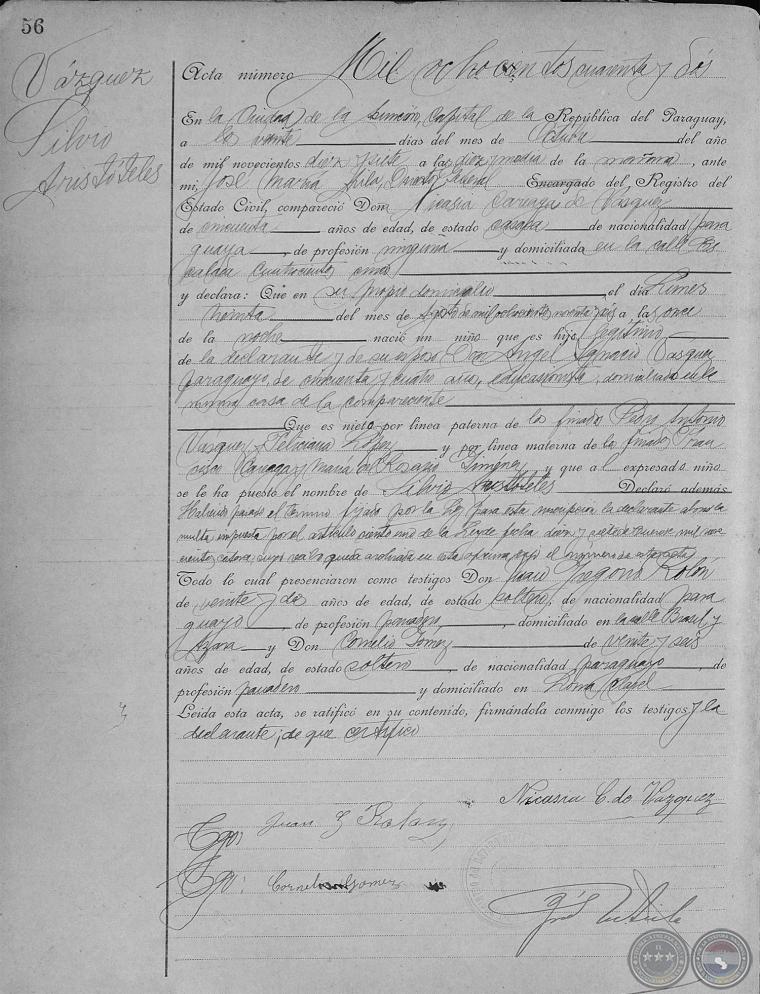 56
Vázquez
Silvio
Aristóteles
Acta número Mil ochocientos cuarenta y dós
En la Ciudad de la Asunción, Capital de la República del Paraguay,
a los veinte días del mes de Octubre del año
de mil novecientos diez y siete a las diez y media de la mañana, ante
mi, José María Avila, Encargado del Registro del
Estado Civil, compareció Don Nicasia Cariaga de Vasquez
de cincuenta años de edad, de estado casada de nacionalidad para
guaya, de profesión ninguna y domiciliada en la calle Es
calada cuatrocientos
y declara: Que en su propio domicilio el día Lunes
treinta del mes de Agosto de mil ochocientos noventa y seis a las once
de la noche nació un niño que es hijo legítimo
de la declarante y de su esposo Don Angel Ignacio Vasquez
paraguayo, de cincuenta y cuatro años, educacionista, domiciliado en la
misma casa de la compareciente
Que es nieto por línea paterna de los finados Pedro Antonio
Vásquez y Feliciana López y por línea materna de los finados Fran
cisco Cariaga y María del Rosario Gimenez y que al expresado niño
se le ha puesto el nombre de Silvio Aristóteles Declaró además
Habiendo pasado el termino fijado por la ley para esta inscripción la declarante abonó la
multa impuesta por el artículo ciento uno de la Ley de fecha
Todo lo cual presenciaron como testigos Don Juan Gregorio Rolón
de veinte y dos años de edad, de estado soltero, de nacionalidad para
guayo, de profesión panadero, domiciliado en la calle Brasil y
Azara y Don Cornelio Gomez de veinte y seis
años de edad, de estado soltero, de nacionalidad paraguayo, de
profesión panadero y domiciliado en Loma
Leida esta acta, se ratificó en su contenido, firmándola conmigo los testigos y la
declarante; de que certifico
Nicasia C. de Vazquez
Tgo: Juan G Rolon
Tgo: Cornelio Gomez